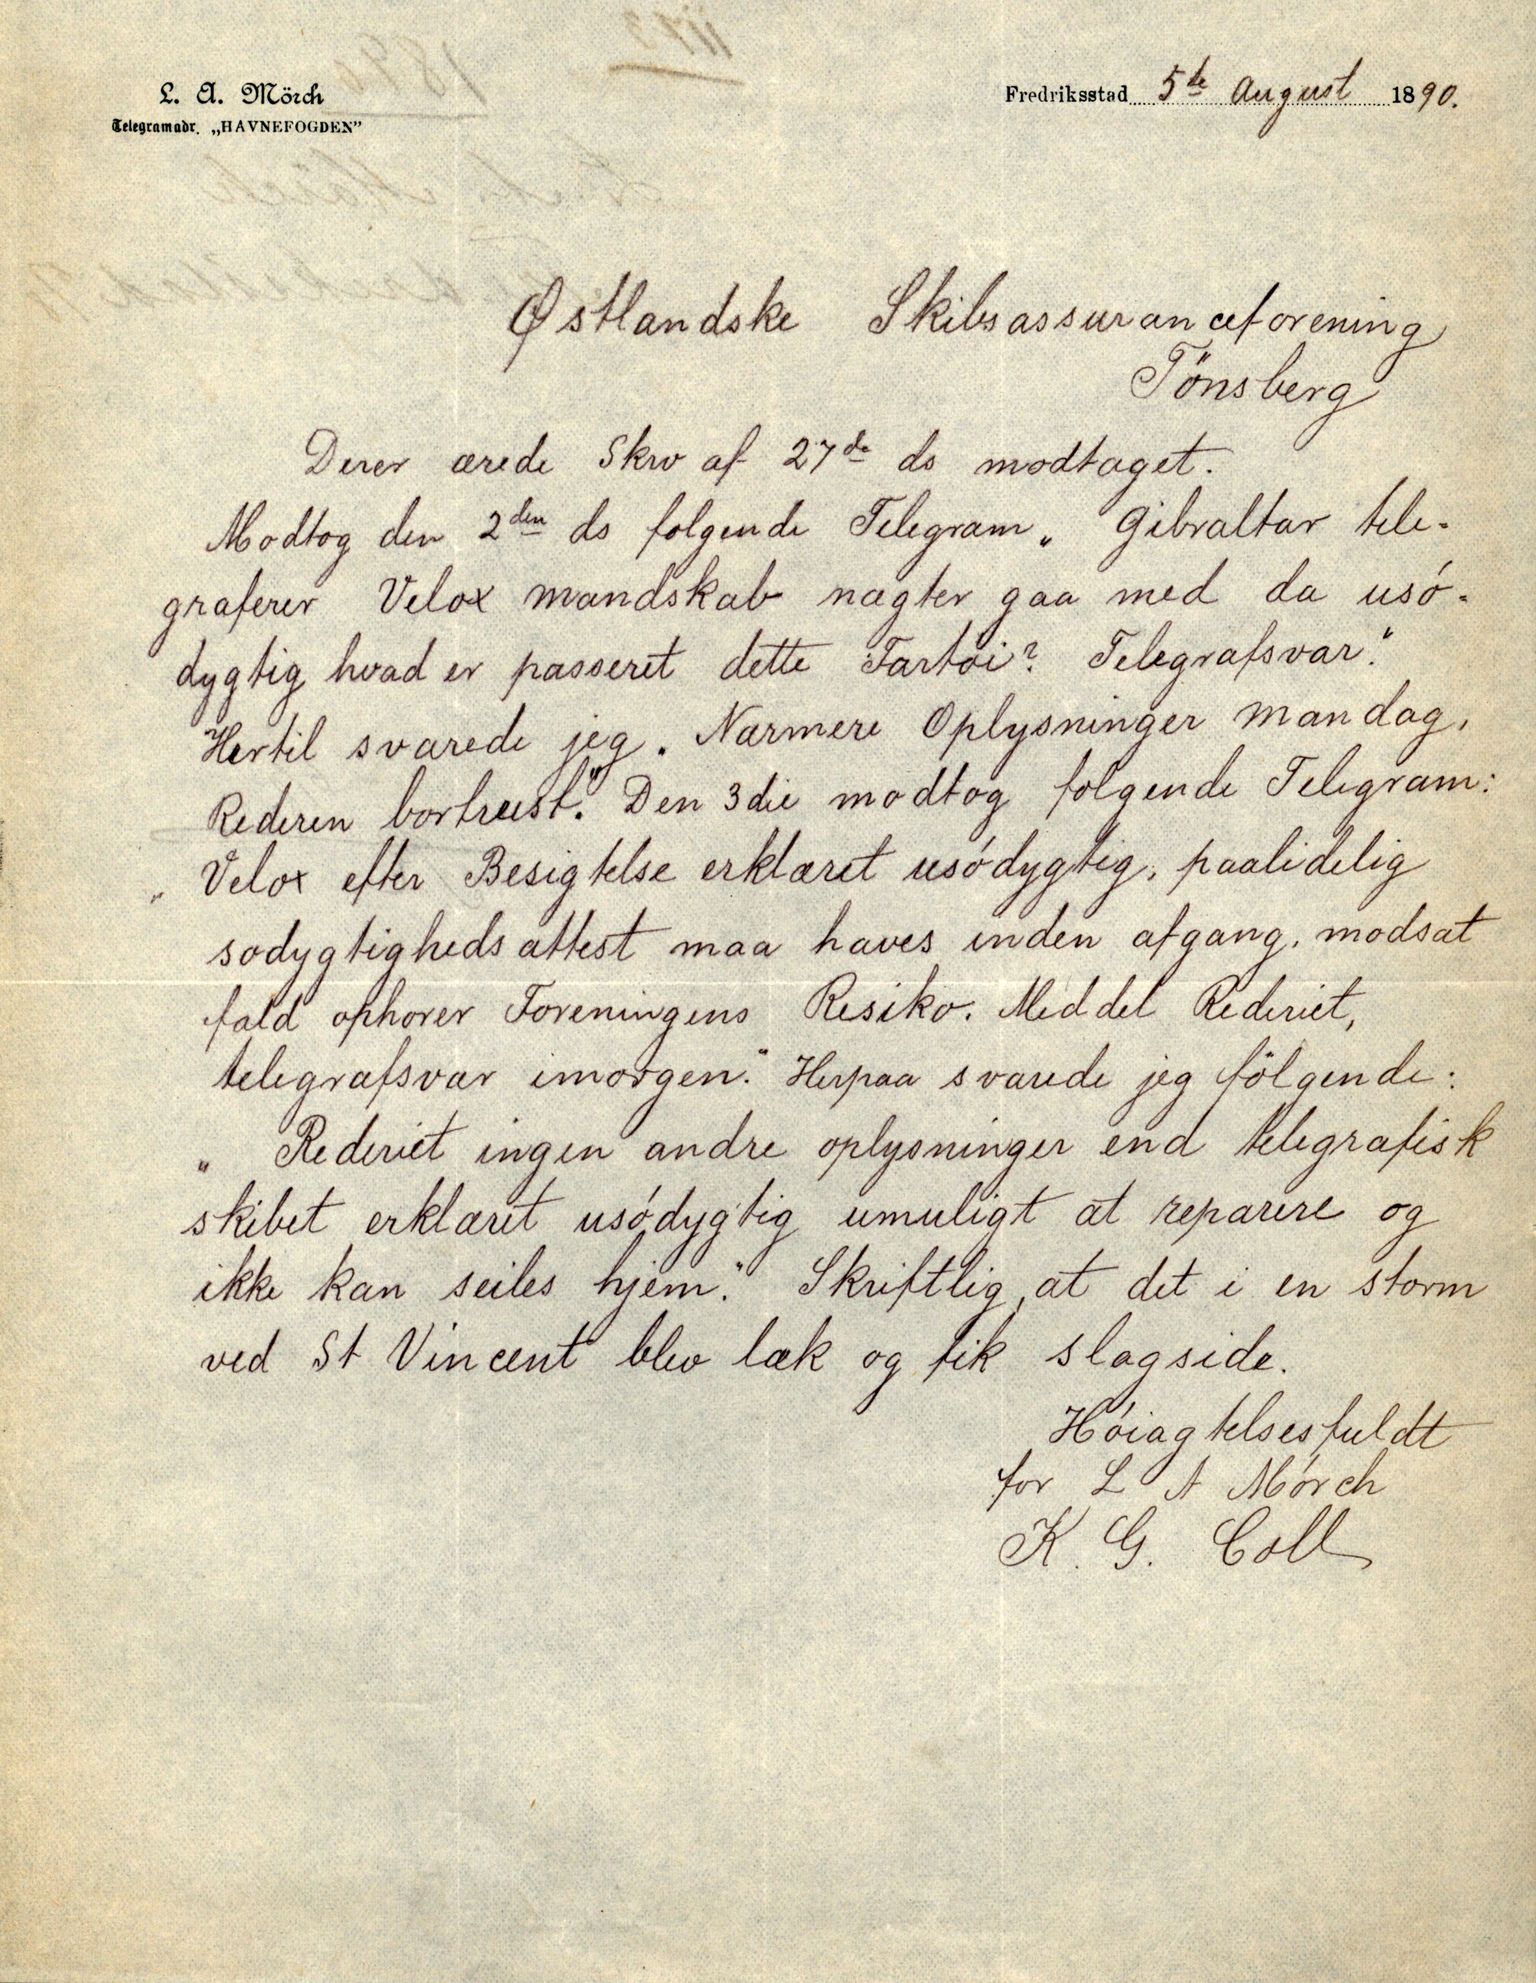 L. A. Mörch
Telegramadr. „HAVNEFOGDEN”
Fredriksstad 5te August 1890.
Østlandske Skibsassuranceforening
Tönsberg
Deres ærede Skrv af 27de ds modtaget.
Modtog den 2den ds folgende Telegram „ Gibraltar tele-
graferer Velox mandskab nægter gaa med da usó-
dygtig hvad er passeret dette Fartøi? Telegrafsvar."
Hertil svarede jeg „ Nærmere Oplysninger Mandag,
Rederen bortreist." Den 3die modtog folgende Telegram:
„ Velox efter Besigtelse erklæret usódygtig, paalidelig
sodygtighedsattest maa haves inden afgang, modsat
fald ophorer Foreningens Resiko. Meddel Rederiet,
telegrafsvar imorgen." Herpaa svarede jeg fölgende:
„ Rederiet ingen andre oplysninger end telegrafisk
skibet erklæret usódygtig umuligt at reparere og
ikke kan seiles hjem." Skriftlig, at det i en storm
ved St Vincent blev læk og fik slagside.
Hóiagtelsesfuldt
for L A Mórch
K. G. Coll